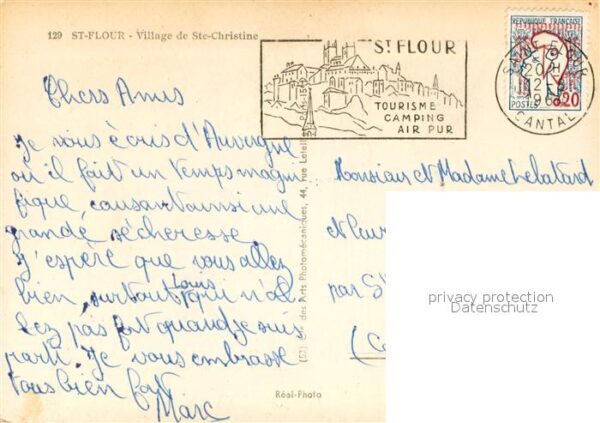 129 ST-FLOUR - Village de Ste-Christine
ST FLOUR
TOURISME
CAMPING
AIR PUR
REPUBLIQUE FRANÇAISE
POSTES 0,20
SAINT-FLOUR
20 H
12-8
CANTAL
Chers Amis
Je vous écris d'Auvergne
où il fait un temps magni
fique, causant aussi une
grande sécheresse.
J'espère que vous allez
bien, surtout Louis qui n'al
lez pas fort quand je suis
parti. Je vous embrasse
tous bien fort
Marc
Monsieur et Madame Lebatard
et leur
par S
(C
des Arts Photomécaniques, 44, rue Letellier
Réal-Photo
privacy protection
Datenschutz